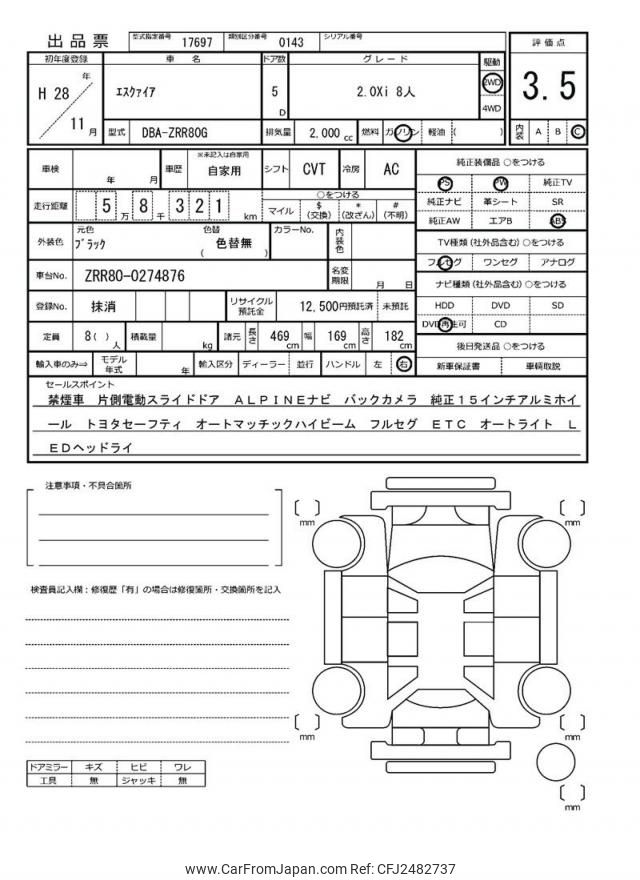 出品票 型式指定番号 17697 類別区分番号 0143 シリアル番号
初年度登録 車 名 ドア数 グレード 駆動 評価点
H 28 年 11 月 ｴｽｸｧｲｱ 5 D 2.0Xi 8人 2WD 4WD 3.5
型式 DBA-ZRR80G 排気量 2,000 cc 燃料 ガソリン 軽油 ( ) 内装 A B C
車検 年 月 車歴 ※未記入は自家用 自家用 シフト CVT 冷房 AC 純正装備品 ○をつける
PS PW 純正TV
走行距離 5 万 8 千 3 2 1 km ○をつける
マイル $ (交換) * (改ざん) # (不明) 純正ナビ 革シート SR
純正AW エアB ABS
外装色 元色 ﾌﾞﾗｯｸ 色替 ( 色替無 ) カラーNo. 内装色 TV種類 (社外品含む) ○をつける
フルセグ ワンセグ アナログ
車台No. ZRR80-0274876 名変期限 月 日 ナビ種類 (社外品含む) ○をつける
登録No. 抹消 リサイクル預託金 12,500円預託済 未預託 HDD DVD SD
DVD再生可 CD
定員 8( ) 人 積載量 kg 諸元 長さ 469 cm 幅 169 cm 高さ 182 cm 後日発送品 ○をつける
輸入車のみ⇒ モデル年式 年 輸入区分 ディーラー 並行 ハンドル 左 右 新車保証書 車輌取説
セールスポイント
禁煙車 片側電動スライドドア ＡＬＰＩＮＥナビ バックカメラ 純正１５インチアルミホイ
ール トヨタセーフティ オートマッチックハイビーム フルセグ ＥＴＣ オートライト Ｌ
ＥＤヘッドライ
注意事項・不具合箇所
検査員記入欄：修復歴「有」の場合は修復箇所・交換箇所を記入
mm
mm
mm
mm
mm
ドアミラー キズ ヒビ ワレ
工具 無 ジャッキ 無
www.CarFromJapan.com Ref: CFJ2482737